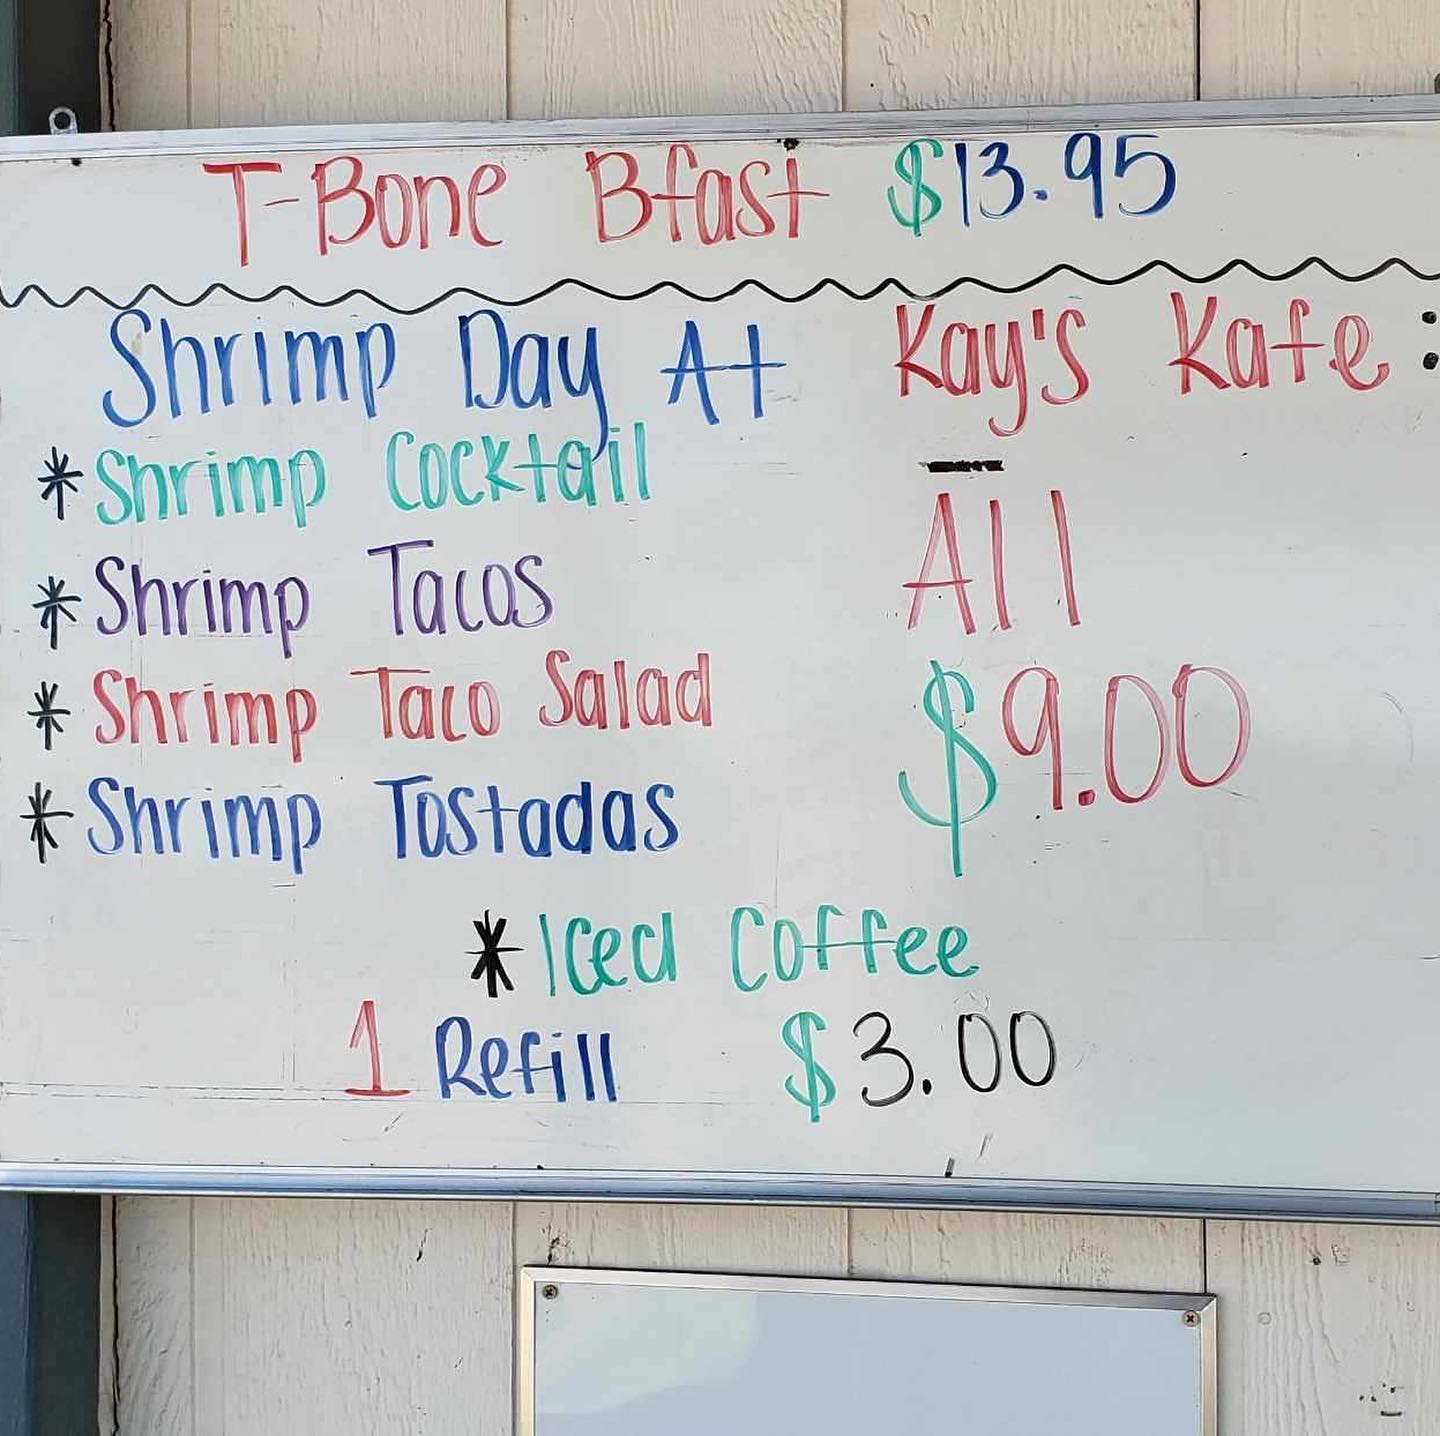 T-Bone Bfast $13.95
Shrimp Day At Kay's Kafe:
* Shrimp Cocktail
* Shrimp Tacos
* Shrimp Taco Salad
* Shrimp Tostadas
All
$9.00
* Iced Coffee
1 Refill $3.00